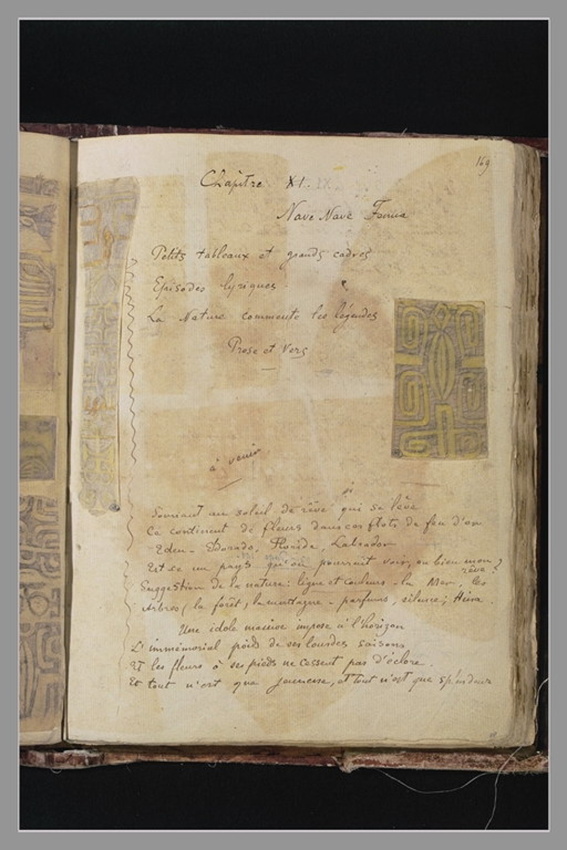 169
Chapitre XI. IX.
Nave Nave Fenua
Petits tableaux et grands cadres
Episodes lyriques
La Nature commente les légendes
Prose et Vers
à venir
Souriant au soleil de rêve qui se lève
Ce continent de fleurs dans ces flots de feu d'or
Eden - Eldorado, Floride, Labrador
Est ce un pays qu'on pourrait voir, ou bien mon rêve?
Suggestion de la nature: ligne et couleurs - la Mer, les
Arbres (la forêt, la montagne - parfums, silence; Hina.
Une idole massive impose à l'horizon
L'immémorial poids de ses lourdes saisons
Et les fleurs à ses pieds ne cessent pas d'éclore.
Et tout n'est que jeunesse, et tout n'est que splendeur